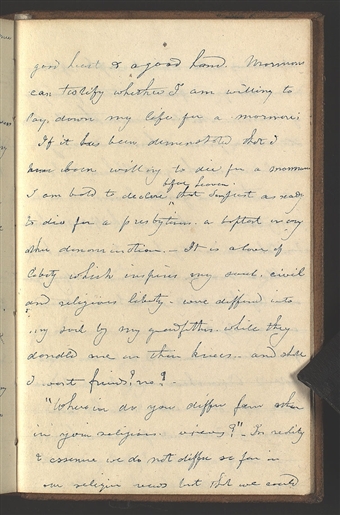 good heart & a good hand. Mormons
can testify whether I am willing to
lay down my life for a mormon;
If it has been demonstrated that I
have been willing to die for a mormon
before heaven
I am bold to declare that I am just as ready
to die for a presbyterian a baptist or any
other denomination.— It is a love of
libety which inspires my soul. civil
and religious liberty— were diffused into
my soul by my grandfathers. while they
dandled me on their knees— and shall
I want friends? no!
"Wherein do you differ from other
in your religious views?"— In reality
& essence we do not differ so far in
our religious views but that we could